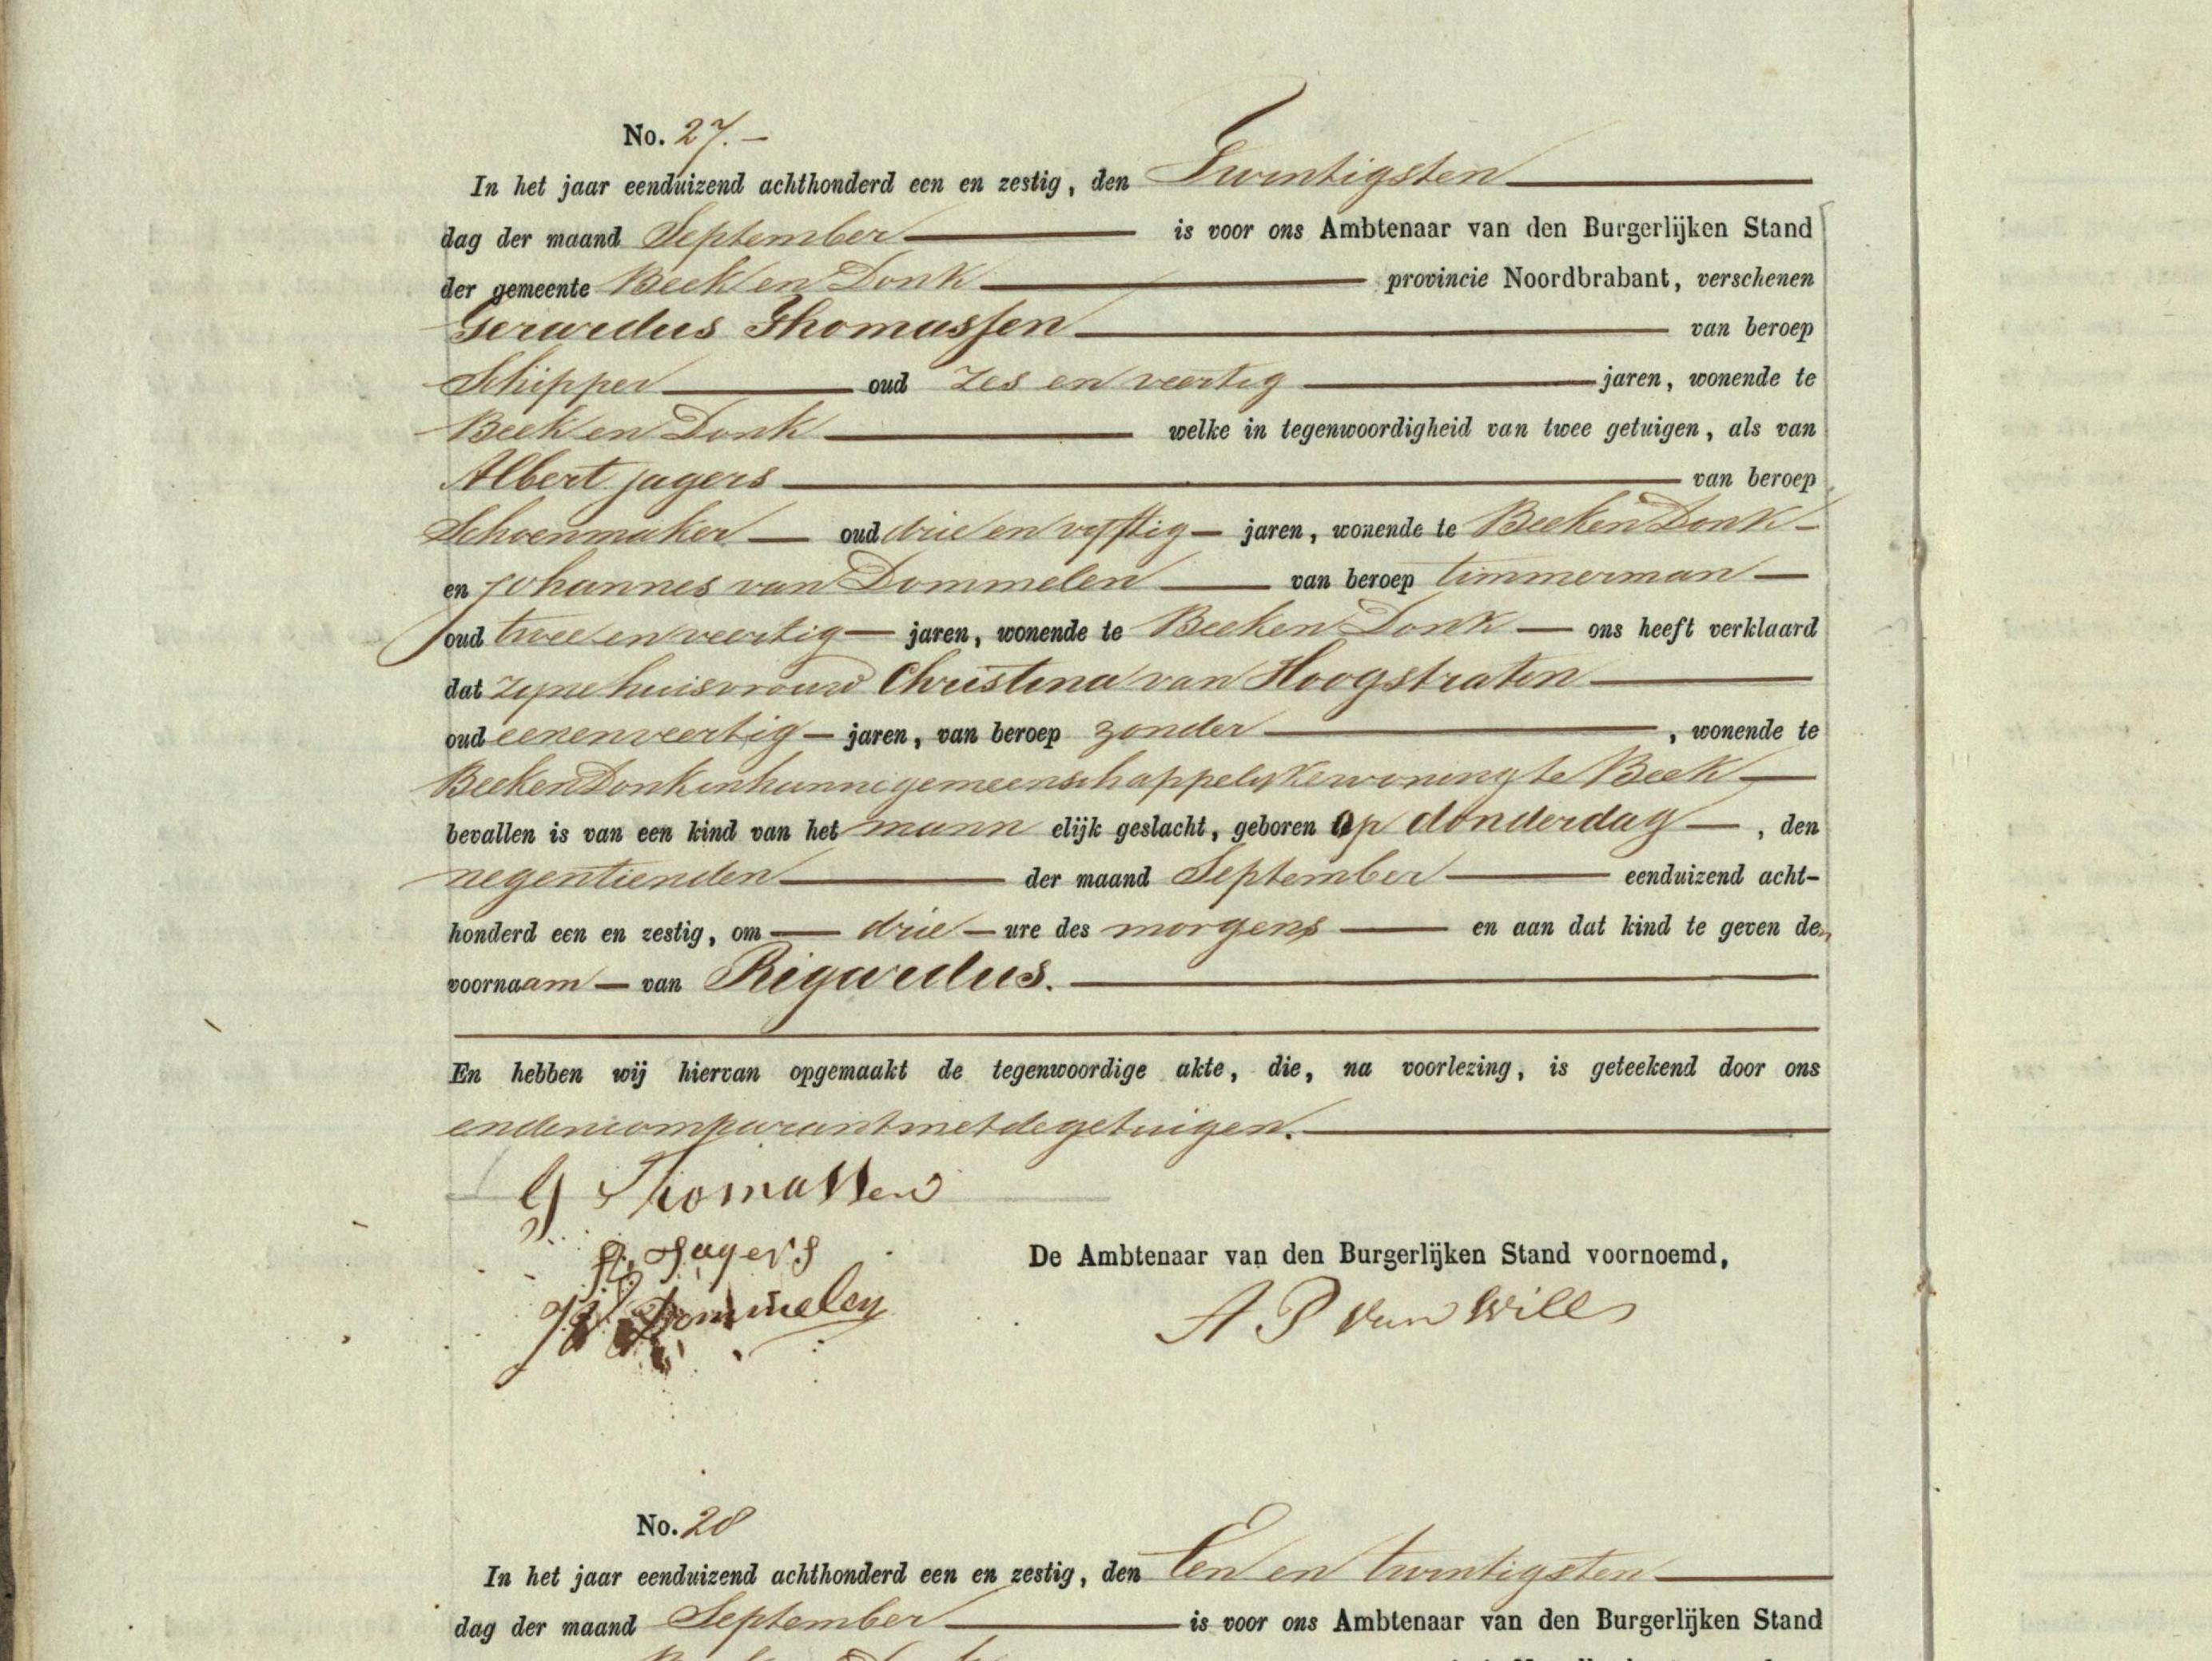 No. 27.-
In het jaar eenduizend achthonderd een en zestig, den Twintigsten
dag der maand September is voor ons Ambtenaar van den Burgerlijken Stand
der gemeente Beek en Donk provincie Noordbrabant, verschenen
Gerardus Thomassen van beroep
Schipper oud zes en veertig jaren, wonende te
Beek en Donk welke in tegenwoordigheid van twee getuigen, als van
Albert Jagers van beroep
Schoenmaker oud drie en vyftig jaren, wonende te Beek en Donk
en Johannes van Dommelen van beroep timmerman
oud twee en veertig jaren, wonende te Beek en Donk ons heeft verklaard
dat zyne huisvrouw Christina van Hoogstraten
oud een en veertig jaren, van beroep zonder, wonende te
Beek en Donk in hunne gemeenschappelyke woning te Beek
bevallen is van een kind van het mannelijk geslacht, geboren Op donderdag, den
negentienden der maand September eenduizend acht-
honderd een en zestig, om drie ure des morgens en aan dat kind te geven den
voornaam van Rigardus.
En hebben wij hiervan opgemaakt de tegenwoordige akte, die, na voorlezing, is geteekend door ons
en den comparant met de getuigen.
G Thomassen
A. Jagers
De Ambtenaar van den Burgerlijken Stand voornoemd,
Dommelen
A P van Will
No. 28
In het jaar eenduizend achthonderd een en zestig, den Een en twintigsten
dag der maand September is voor ons Ambtenaar van den Burgerlijken Stand